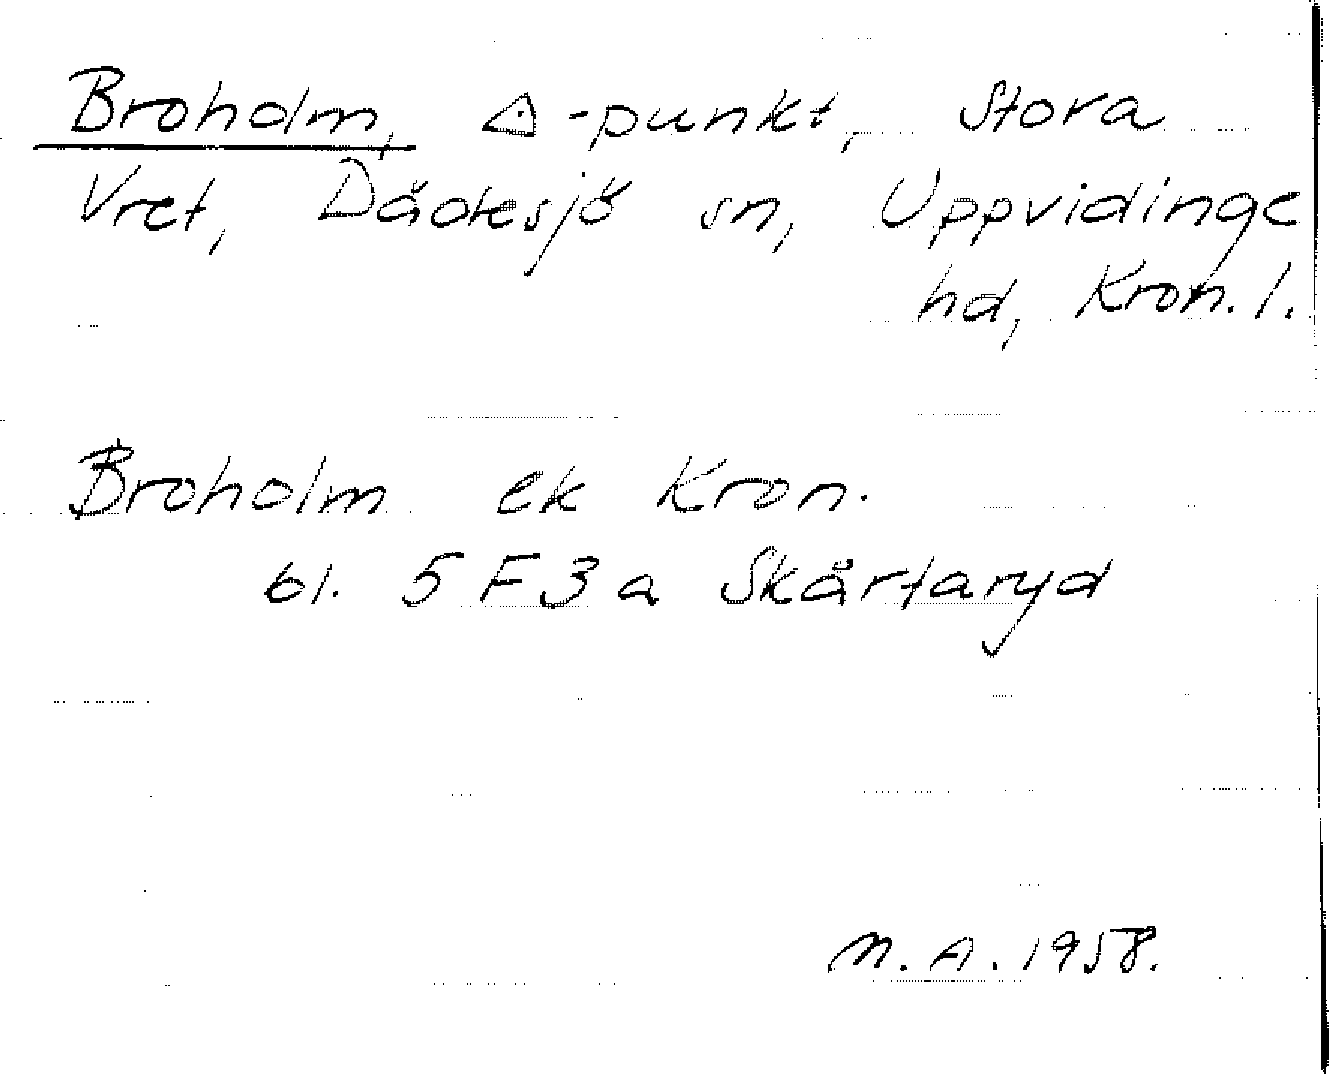 Broholm, △-punkt, Stora
Vret, Dädesjö sn, Uppvidinge
hd, Kron. l.
Broholm ek Kron.
bl. 5 F 3 a Skårtaryd
N. A. 1958.